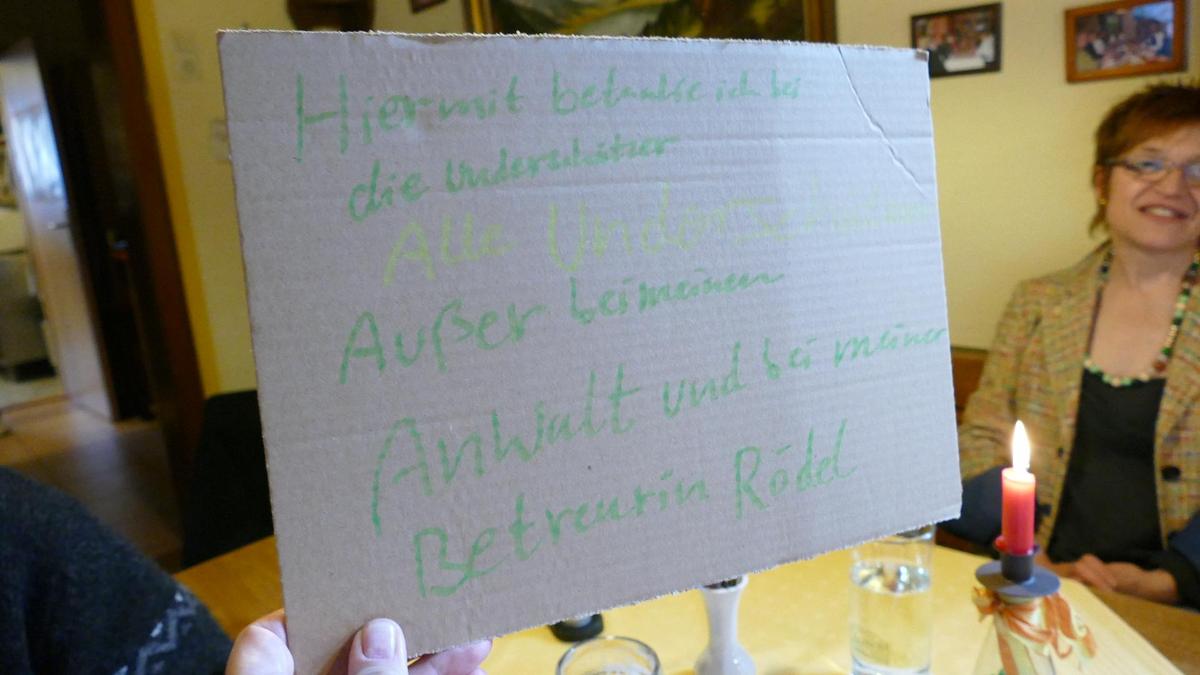 Hiermit bedanke ich bei
die Underschätzer
Alle
Außer bei meinen
Anwalt und bei meiner
Betreurin Rödel